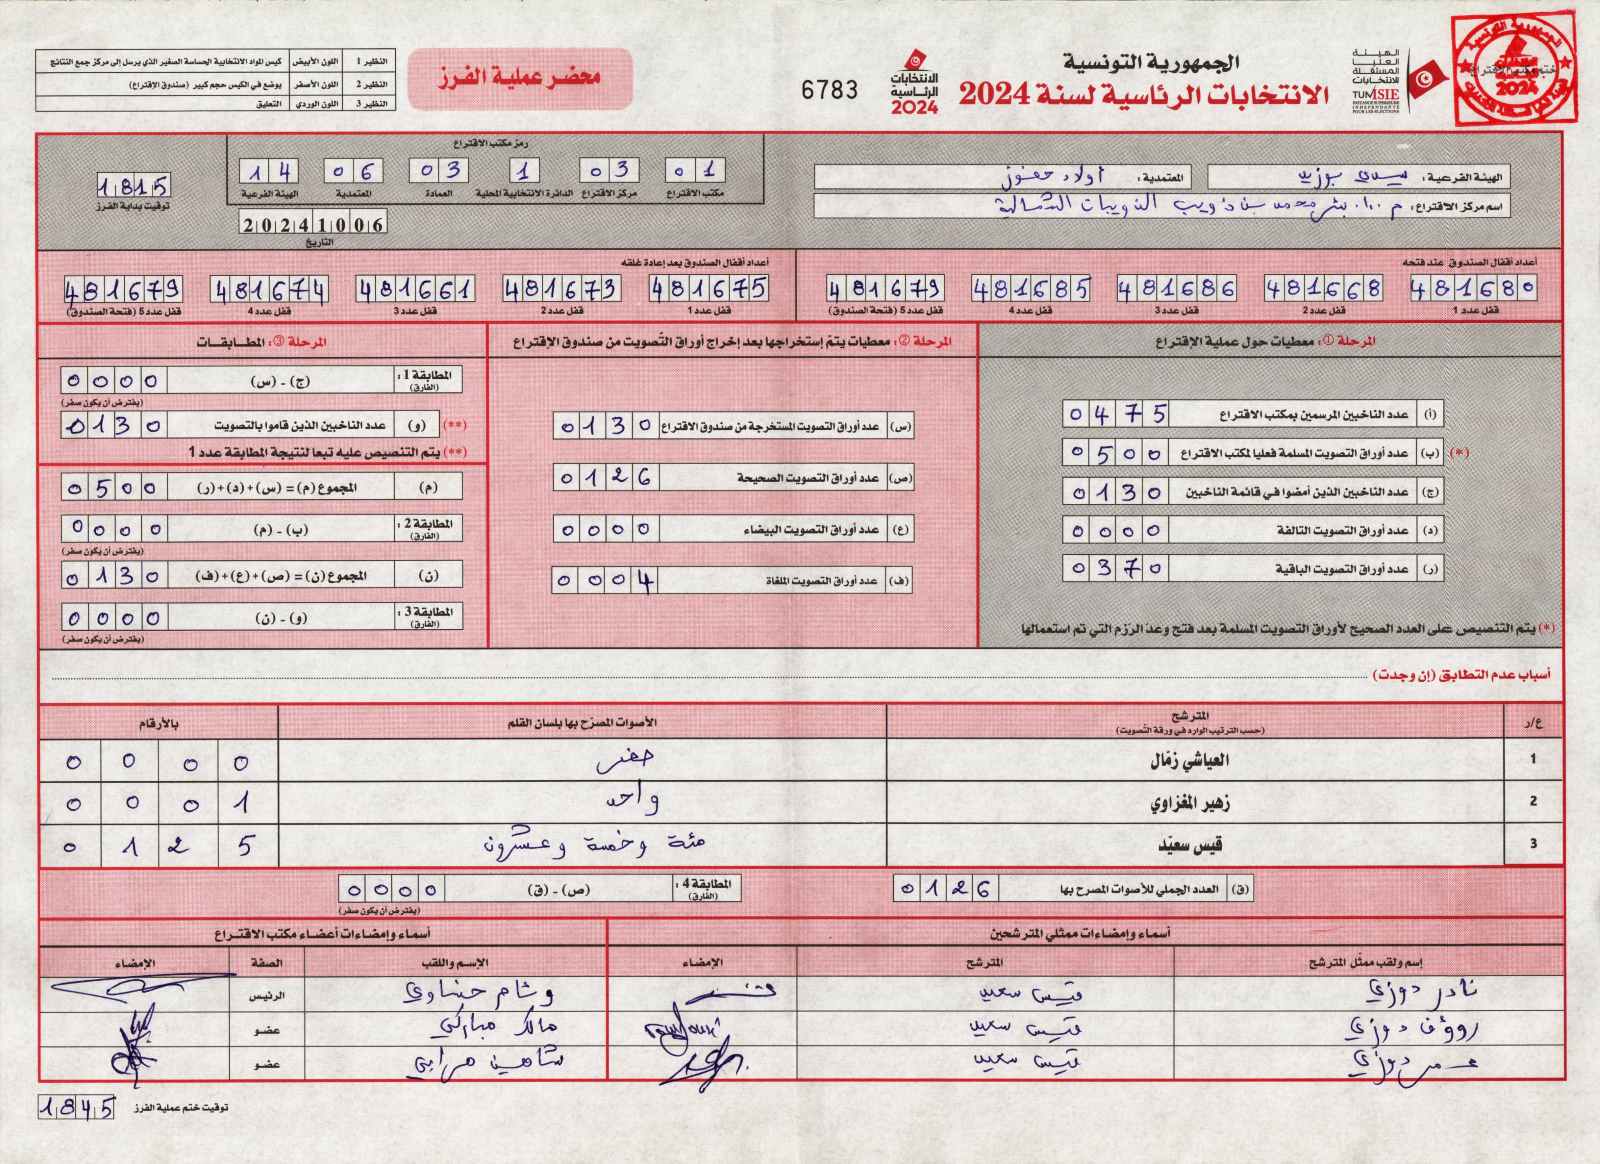 الجمهورية التونسية
الانتخابات الرئاسية لسنة 2024
الهيئة
العليا
المستقلة
للانتخابات
TUNISIE
الانتخابات
الرئاسية
2024
6783
محضر عملية الفرز
النظير 1 اللون الأبيض كيس المواد الانتخابية الحساسة الصغير الذي يرسل إلى مركز جمع النتائج
النظير 2 اللون الأصفر يوضع في الكيس حجم كبير (صندوق الاقتراع)
النظير 3 اللون الوردي التعليق
الهيئة الفرعية: سيدي بوزيد المعتمدية: أولاد حفوز
اسم مركز الاقتراع:
رمز مكتب الاقتراع
01 03 1 03 06 14
مكتب الاقتراع مركز الاقتراع الدائرة الانتخابية المحلية العمادة المعتمدية الهيئة الفرعية
20241006
التاريخ
1815
توقيت بداية الفرز
أعداد أقفال الصندوق عند فتحه
481680 481668 481686 481685 481679
قفل عدد 1 قفل عدد 2 قفل عدد 3 قفل عدد 4 قفل عدد 5 (فتحة الصندوق)
أعداد أقفال الصندوق بعد إعادة غلقه
481675 481673 481661 481674 481679
قفل عدد 1 قفل عدد 2 قفل عدد 3 قفل عدد 4 قفل عدد 5 (فتحة الصندوق)
المرحلة ①: معطيات حول عملية الإقتراع
(أ) عدد الناخبين المرسمين بمكتب الاقتراع 0475
(*) (ب) عدد أوراق التصويت المسلمة فعليا لمكتب الاقتراع 0500
(ج) عدد الناخبين الذين أمضوا في قائمة الناخبين 0130
(د) عدد أوراق التصويت التالفة 0000
(ر) عدد أوراق التصويت الباقية 0370
(*) يتم التنصيص على العدد الصحيح لأوراق التصويت المسلمة بعد فتح وعدّ الرّزم التي تم استعمالها
المرحلة ②: معطيات يتمّ إستخراجها بعد إخراج أوراق التّصويت من صندوق الإقتراع
(س) عدد أوراق التصويت المستخرجة من صندوق الاقتراع 0130
(ص) عدد أوراق التصويت الصحيحة 0126
(ع) عدد أوراق التصويت البيضاء 0000
(ف) عدد أوراق التصويت الملغاة 0004
المرحلة ③: المطـابـقات
المطابقة 1: (الفارق) (ج) - (س) 0000
(يفترض أن يكون صفر)
(**) (و) عدد الناخبين الذين قاموا بالتصويت 0130
(**) يتم التنصيص عليه تبعا لنتيجة المطابقة عدد 1
(م) المجموع (م) = (س)+(د)+(ر) 0500
المطابقة 2: (الفارق) (ب) - (م) 0000
(يفترض أن يكون صفر)
(ن) المجموع (ن) = (ص)+(ع)+(ف) 0130
المطابقة 3: (الفارق) (و) - (ن) 0000
(يفترض أن يكون صفر)
أسباب عدم التطابق (إن وجدت)
ع/ر المترشح (حسب الترتيب الوارد في ورقة التّصويت) الأصوات المصرّح بها بلسان القلم بالأرقام
1 العياشي زمّال صفر 0000
2 زهير المغزاوي واحد 0001
3 قيس سعيّد مئة وخمسة وعشرون 0125
(ق) العدد الجملي للأصوات المصرح بها 0126
المطابقة 4: (الفارق) (ص) - (ق) 0000
(يفترض أن يكون صفر)
أسماء وإمضاءات ممثلي المترشحين
إسم ولقب ممثّل المترشح المترشح الإمضاء
نادر دوزي قيس سعيد
رؤوف دوزي قيس سعيد
عمر دوزي قيس سعيد
أسماء وإمضاءات أعضاء مكتب الاقتـراع
الإسم واللقب الصفة الإمضاء
وشام حناوي الرئيس
مالك مباركي عضو
شاهين مرابي عضو
توقيت ختم عملية الفرز 1845